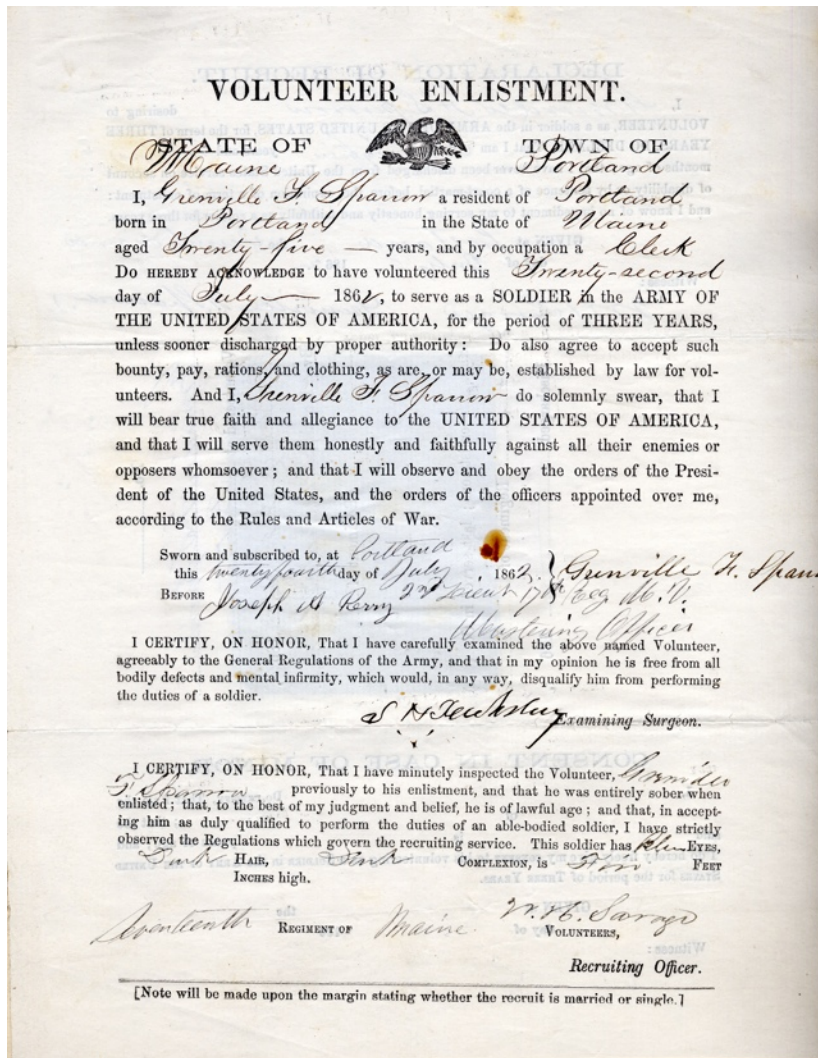 VOLUNTEER ENLISTMENT.
STATE OF TOWN OF
Maine Portland
I, Grenville F. Sparrow a resident of Portland
born in Portland in the State of Maine
aged Twenty-five years, and by occupation a Clerk
DO HEREBY ACKNOWLEDGE to have volunteered this Twenty-second
day of July 1862, to serve as a SOLDIER in the ARMY OF
THE UNITED STATES OF AMERICA, for the period of THREE YEARS,
unless sooner discharged by proper authority: Do also agree to accept such
bounty, pay, rations, and clothing, as are, or may be, established by law for vol-
unteers. And I, Grenville F. Sparrow do solemnly swear, that I
will bear true faith and allegiance to the UNITED STATES OF AMERICA,
and that I will serve them honestly and faithfully against all their enemies or
opposers whomsoever; and that I will observe and obey the orders of the Presi-
dent of the United States, and the orders of the officers appointed over me,
according to the Rules and Articles of War.
Sworn and subscribed to, at Portland
this twenty fourth day of July 1862. Grenville F. Sparr
BEFORE Joseph A Perry 2nd Lieut 17th Reg M.V.
Mustering Officer
I CERTIFY, ON HONOR, That I have carefully examined the above named Volunteer,
agreeably to the General Regulations of the Army, and that in my opinion he is free from all
bodily defects and mental infirmity, which would, in any way, disqualify him from performing
the duties of a soldier.
Examining Surgeon.
I CERTIFY, ON HONOR, That I have minutely inspected the Volunteer, Grenville
F. Sparrow previously to his enlistment, and that he was entirely sober when
enlisted; that, to the best of my judgment and belief, he is of lawful age; and that, in accept-
ing him as duly qualified to perform the duties of an able-bodied soldier, I have strictly
observed the Regulations which govern the recruiting service. This soldier has Blue EYES,
Dark HAIR, Dark COMPLEXION, is FEET
INCHES high.
W. H. Savage
Seventeenth REGIMENT OF Maine VOLUNTEERS,
Recruiting Officer.
[Note will be made upon the margin stating whether the recruit is married or single.]